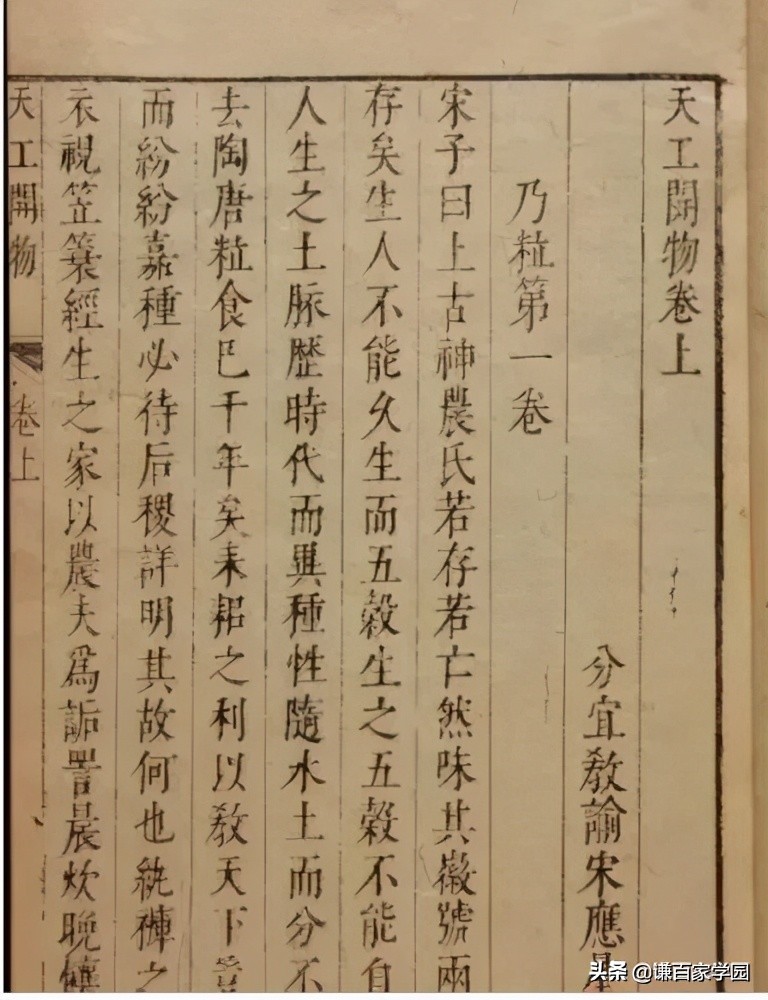 天工開物卷上
分宜敎諭宋應星
乃粒第一卷
宋子曰上古神農氏若存若亡然味其徽號兩
存矣生人不能久生而五穀生之五穀不能自
人生之土脈歴時代而異種性隨水土而分不
去陶唐粒食已千年矣耒耜之利以敎天下豈
而紛紛嘉種必待后稷詳明其故何也紈褲之
衣視笠簑經生之家以農夫爲詬詈晨炊晚饟
天工開物
卷上
头条 @谦百家学园